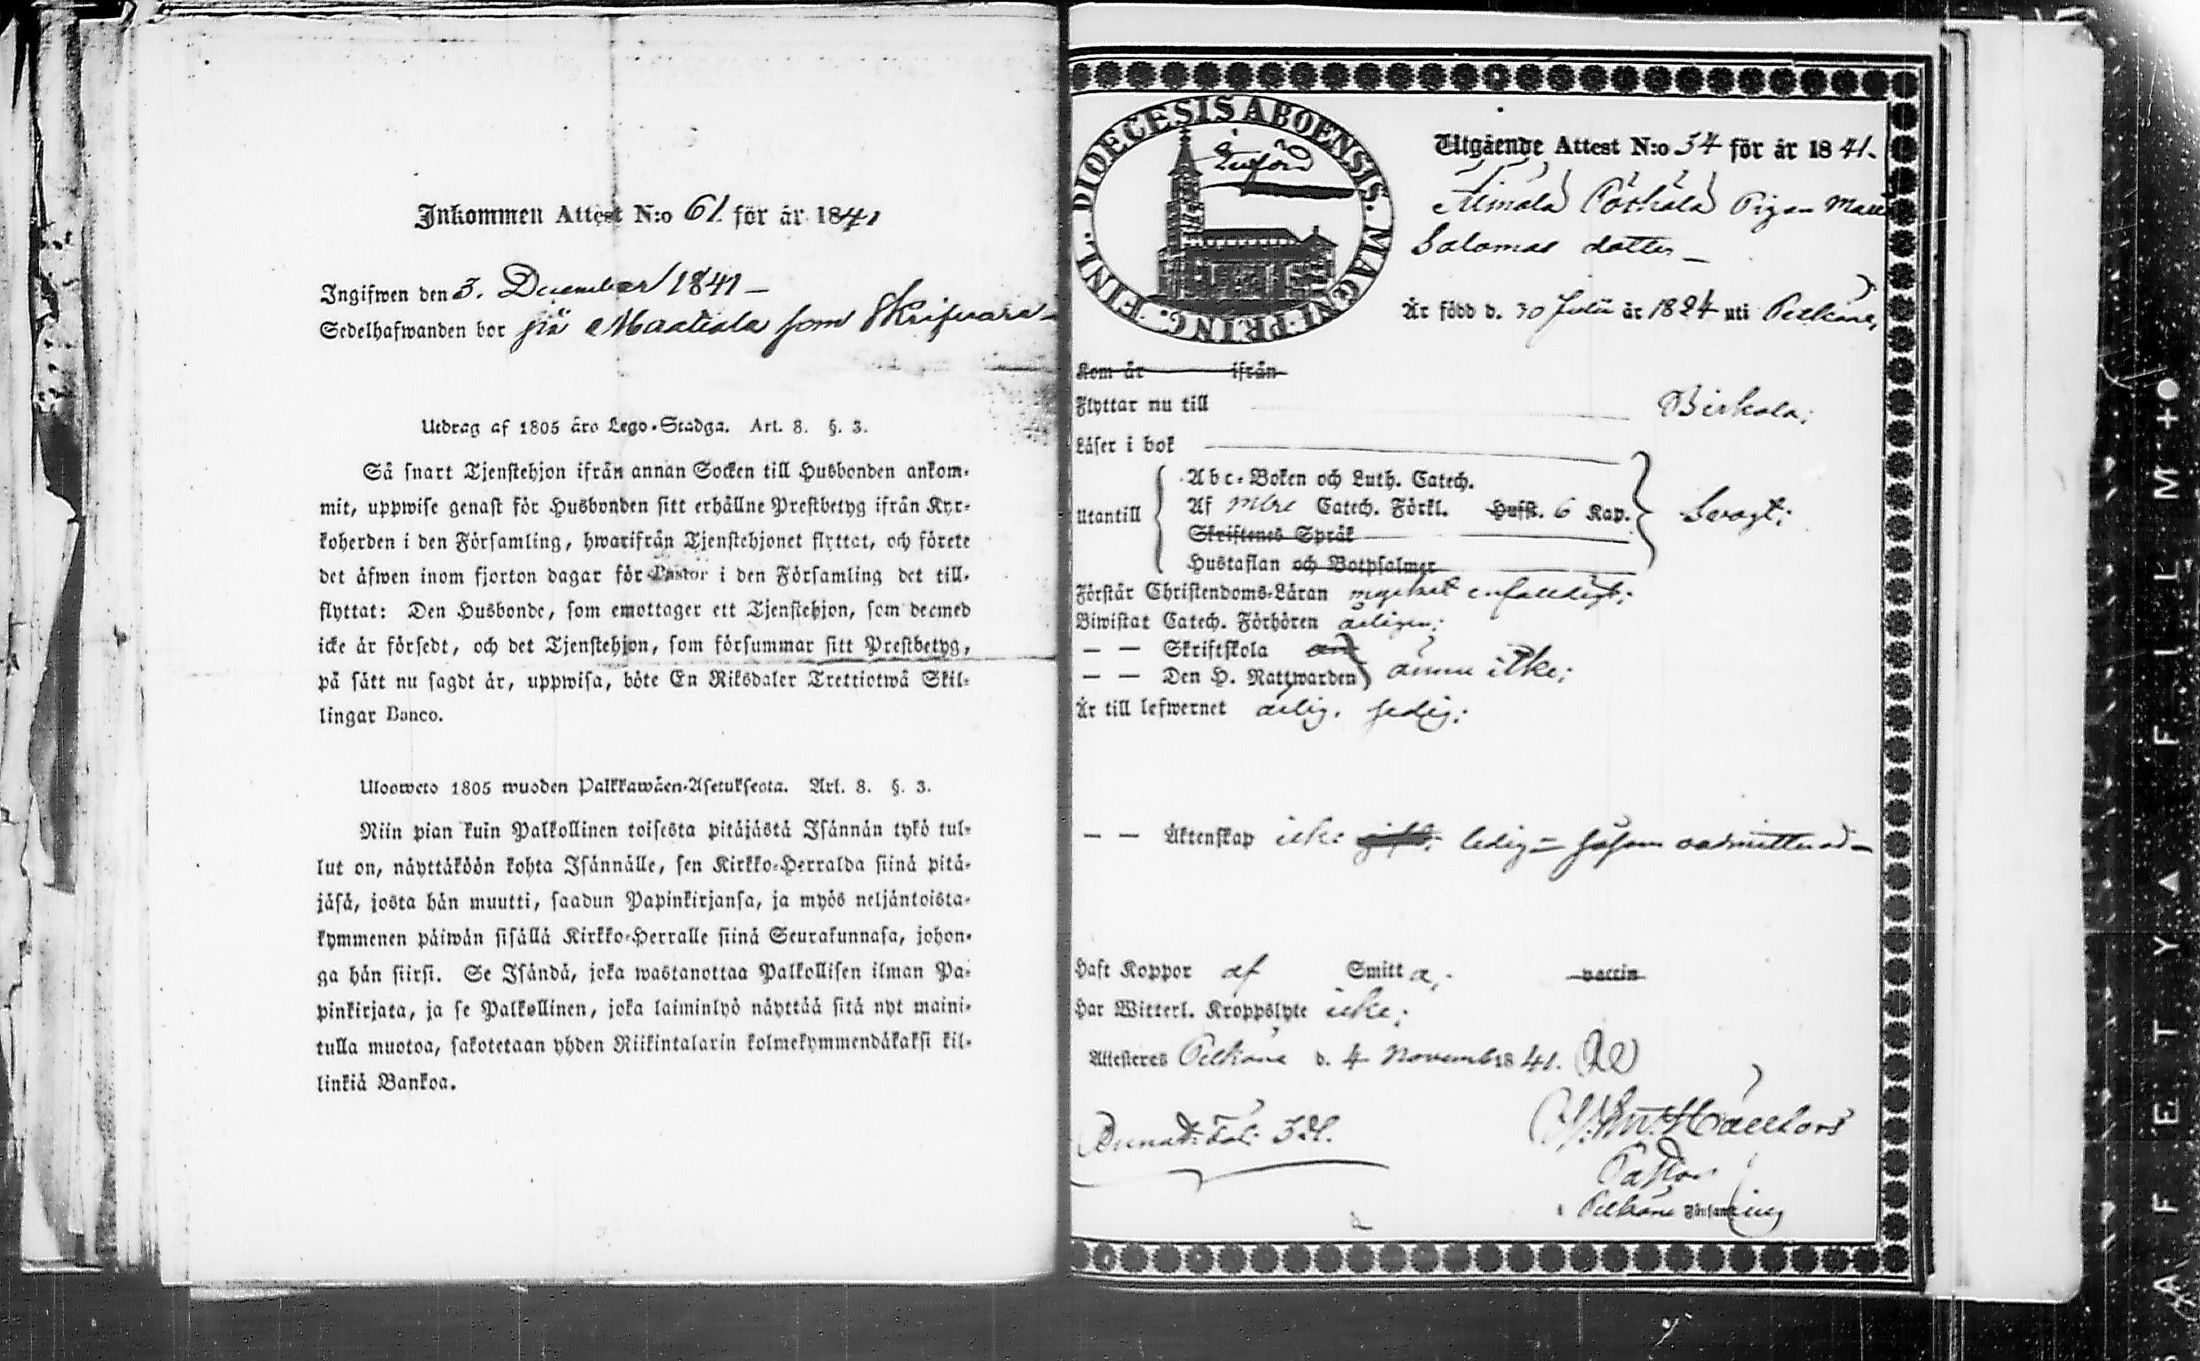 Inkommen Attest N:o 61. för år 1841
Ingifwen den 3. December 1841 –
Sedelhafwanden bor på Maatiala som Skrifvare
Utdrag af 1805 års Lego-Stadga. Art. 8. §. 3.
Så snart Tjenstehjon ifrån annan Socken till Husbonden ankom-
mit, uppwise genast för Husbonden sitt erhållne Prestbetyg ifrån Kyr-
koherden i den Församling, hwarifrån Tjenstehjonet flyttat, och förete
det äfwen inom fjorton dagar för Pastor i den Församling det till-
flyttat: Den Husbonde, som emottager ett Tjenstehjon, som dermed
icke är försedt, och det Tjenstehjon, som försummar sitt Prestbetyg,
på sätt nu sagdt är, uppwisa, böte En Riksdaler Trettiotwå Skil-
lingar Banco.
Uloosweto 1805 wuoden Palkkawäen-Asetuksesta. Art. 8. §. 3.
Niin pian kuin Palkollinen toisesta pitäjästä Isännän tykö tul-
lut on, näyttäköön kohta Isännälle, sen Kirkko-Herralda siinä pitä-
jäsä, josta hän muutti, saadun Papinkirjansa, ja myös neljäntoista-
kymmenen päiwän sisällä Kirkko-Herralle siinä Seurakunnasa, johon-
ga hän siirsi. Se Isändä, joka wastanottaa Palkollisen ilman Pa-
pinkirjata, ja se Palkollinen, joka laiminlyö näyttää sitä nyt maini-
tulla muotoa, sakotetaan yhden Riikintalarin kolmekymmendäkaksi kil-
linkiä Bankoa.
DIOECESIS ABOENSIS. MAGNI PRINC. FINL.
Införd
Utgående Attest N:o 34 för år 1841.
Pigan
Salomos dotter –
År född d. 30 Julii år 1824 uti Pelkäne,
Kom år ifrån
Flyttar nu till Birkala;
Läser i bok
Utantill
Abc-Boken och Luth. Catech.
Af mbre Catech. Förkl. Husst. 6 Kap.
Skriftenes Språk
Hustaflan och Botpsalmer
Svagt;
Förstår Christendoms-Läran mycket enfaldigt;
Biwistat Catech. Förhören årligen;
— — Skriftskola
— — Den H. Nattwarden ännu icke;
Är till lefwernet ärlig, sedig;
— — Äktenskap ledig – såsom oadmitterad –
Haft Koppor af Smitta, vaccin
Har Witterl. Kroppslyte icke;
Attesteras Pelkäne d. 4 Novemb. 1841.
Pastor
i Pelkäne Församling
SAFETY FILM